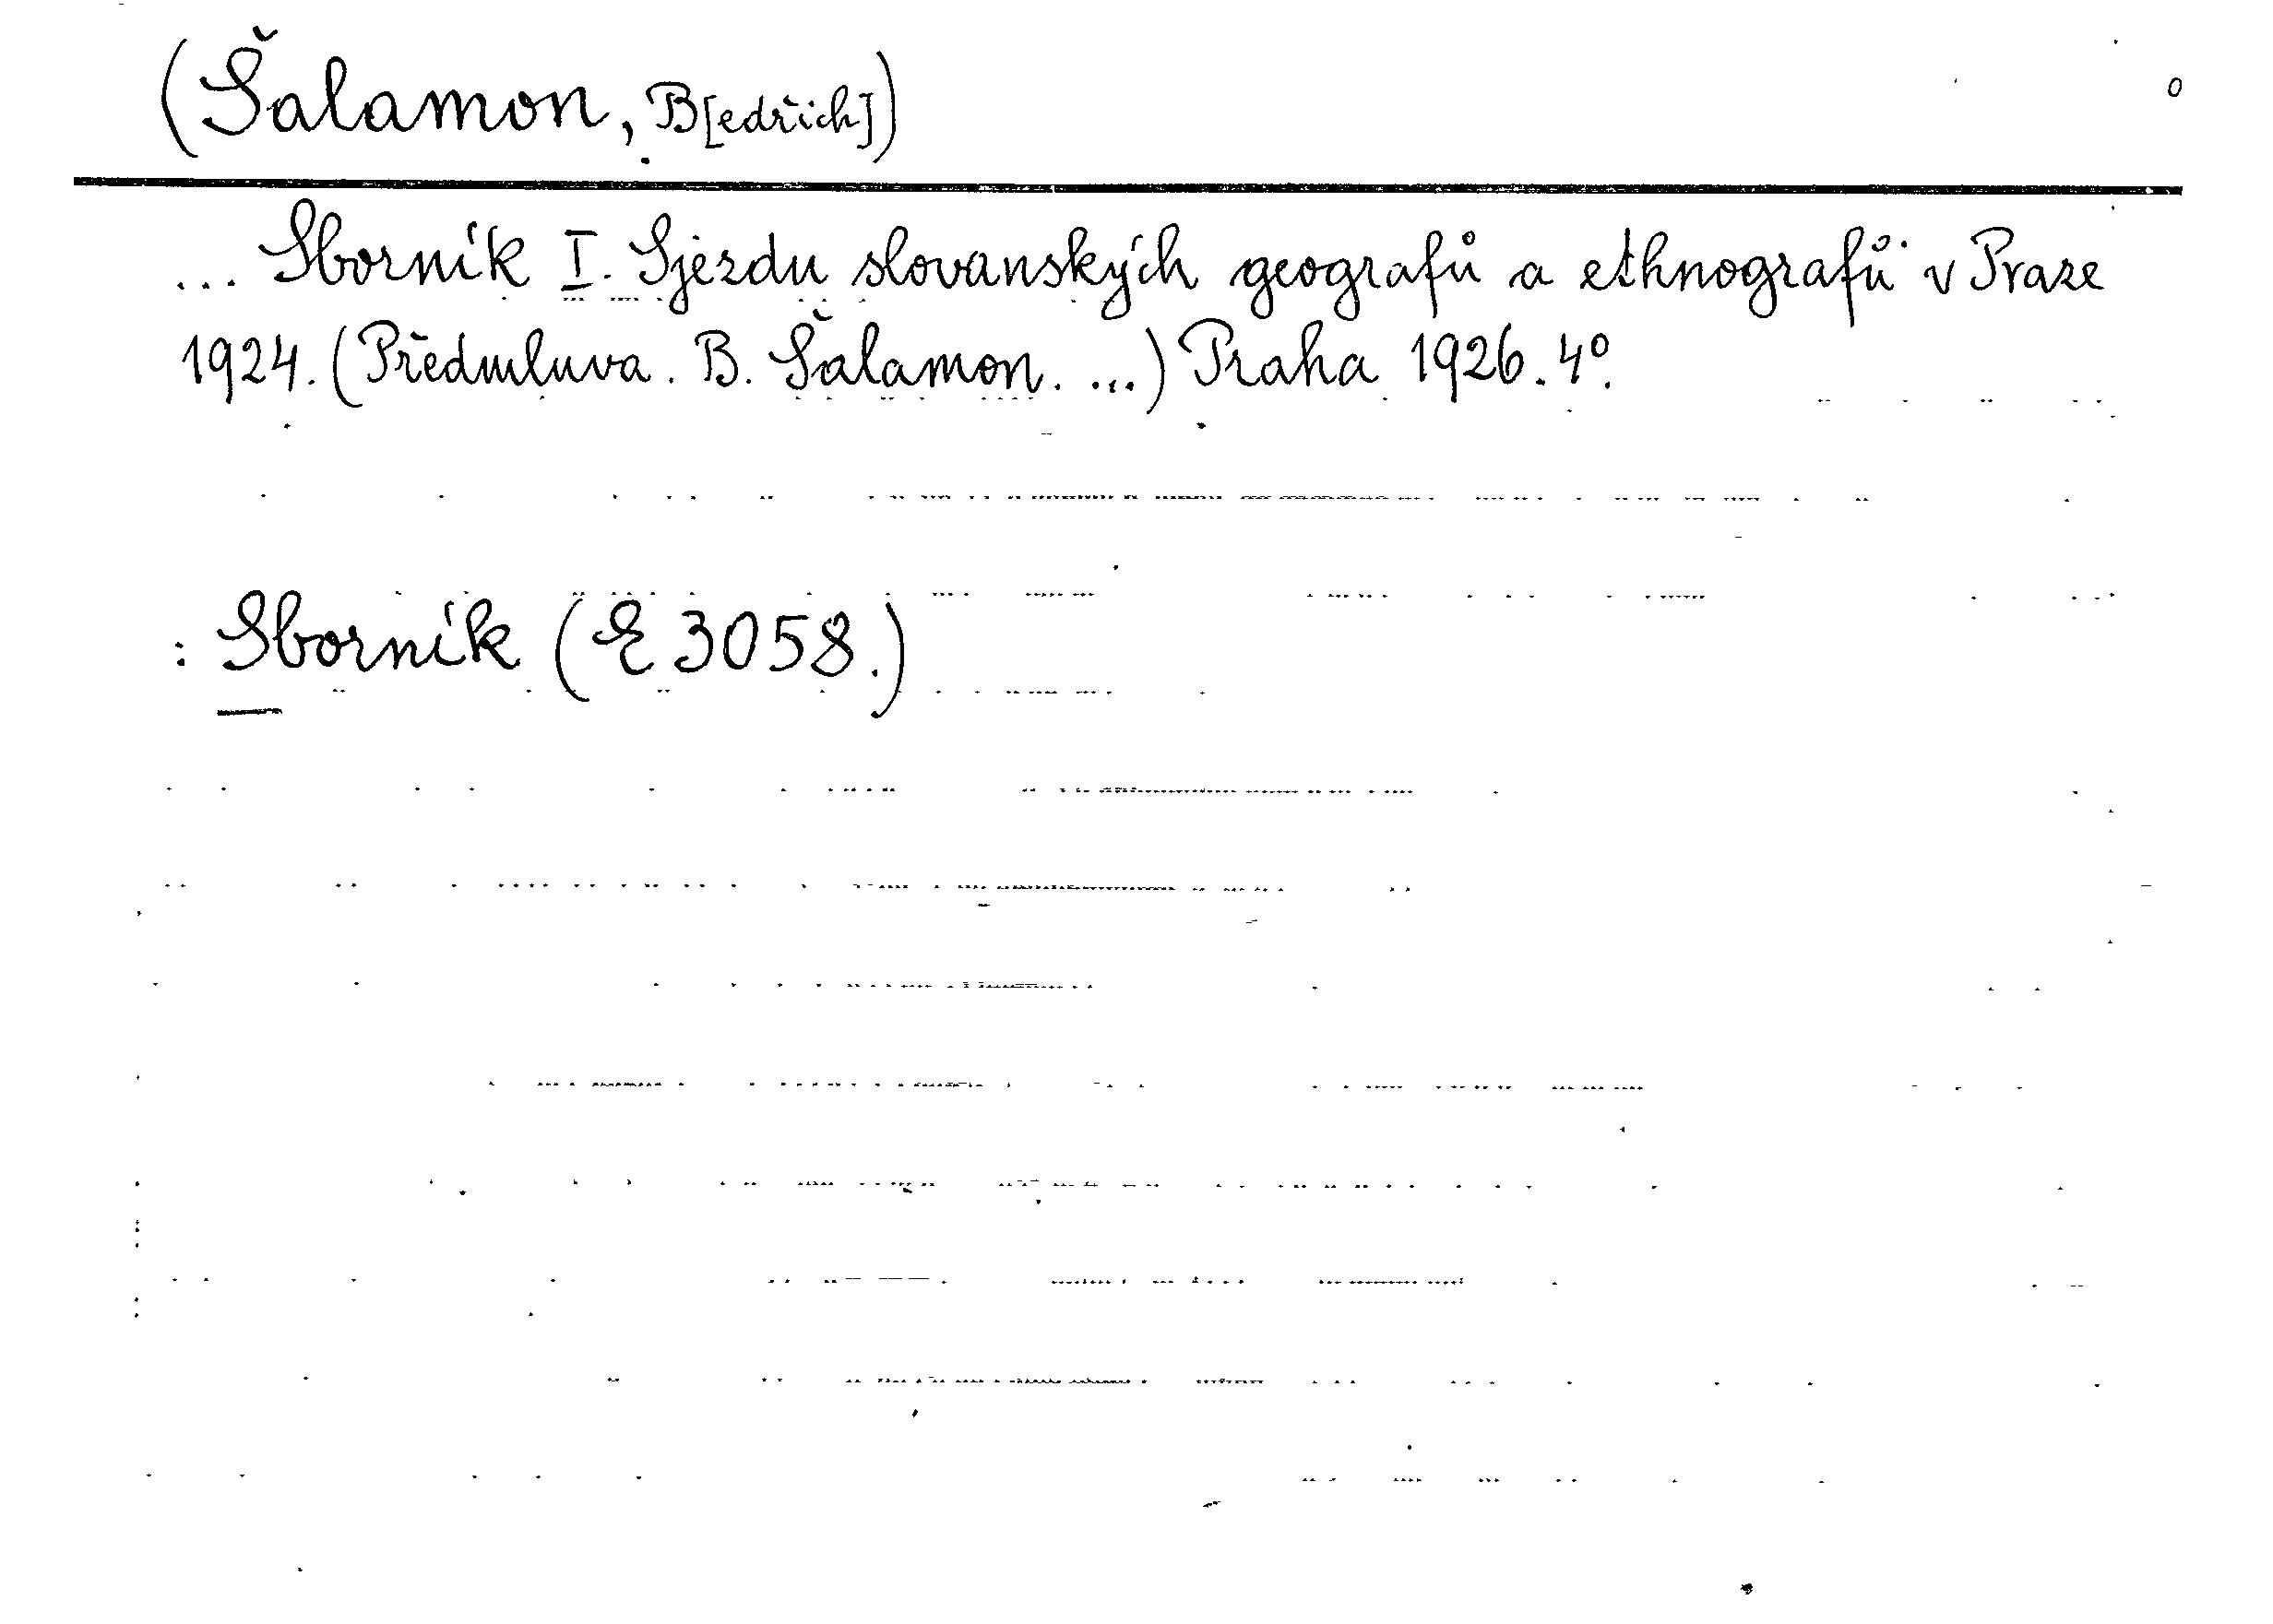 (Šalamon, B[edřich]) 0
... Sborník I. Sjezdu slovanských geografů a ethnografů v Praze
1924. (Předmluva. B. Šalamon. ...) Praha 1926. 4º.
: Sborník (E 3058.)